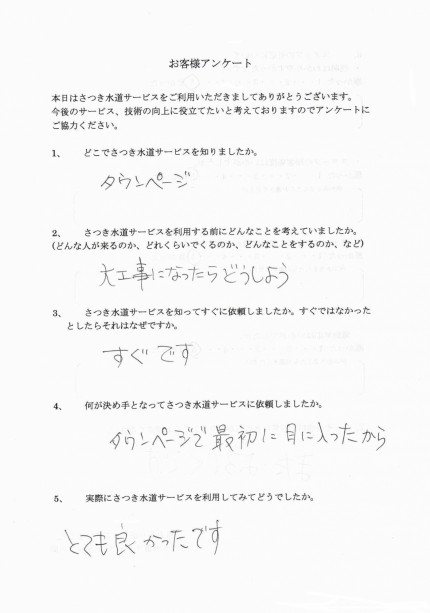 お客様アンケート
本日はさつき水道サービスをご利用いただきましてありがとうございます。
今後のサービス、技術の向上に役立てたいと考えておりますのでアンケートに
ご協力ください。
1、 どこでさつき水道サービスを知りましたか。
タウンページ
2、 さつき水道サービスを利用する前にどんなことを考えていましたか。
(どんな人が来るのか、どれくらいでくるのか、どんなことをするのか、など)
大工事になったらどうしよう
3、 さつき水道サービスを知ってすぐに依頼しましたか。すぐではなかった
としたらそれはなぜですか。
すぐです
4、 何が決め手となってさつき水道サービスに依頼しましたか。
タウンページで最初に目に入ったから
5、 実際にさつき水道サービスを利用してみてどうでしたか。
とても良かったです